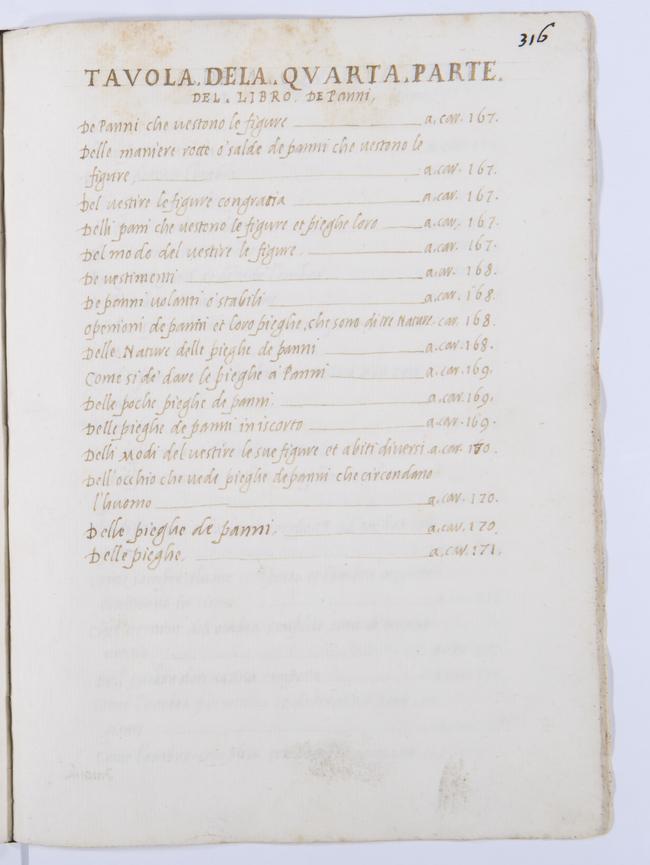 316
TAVOLA.DELA.QVARTA.PARTE.
DEL. LIBRO. DE Panni.
De Panni che vestono le figure a. car. 167.
Delle maniere rotte o' salde de panni che vestono le
figure. a car. 167.
Del vestire le figure con gratia a. car. 167.
Delli pani che vestono le figure et pieghe loro a. car. 167.
Del modo del vestire le figure. a. car. 167.
De vestimenti a. car. 168.
De panni volanti o' stabili a. car. 168.
openioni de panni et loro pieghe, che sono di tre Nature. car. 168.
Delle Nature delle pieghe de panni a. car. 168.
Come si de' dare le pieghe a' Panni a. car. 169.
Delle poche pieghe de panni. a. car. 169.
Delle pieghe de panni in iscorto a. car. 169.
Delli Modi del vestire le sue figure et abiti diversi a. car. 170.
Dell'occhio che vede pieghe de panni che circondano
l'huomo a. car. 170.
Delle pieghe de panni. a. car. 170.
Delle pieghe. a. car. 171.